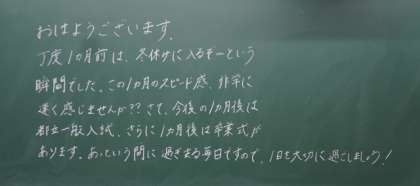 おはようございます。
丁度1カ月前は、冬休みに入るぞーという
瞬間でした。この1カ月のスピード感、非常に
速く感じませんか?? さて、今後の1カ月後は
都立一般入試、さらに1カ月後は卒業式が
あります。あっという間に過ぎる毎日ですので、1日を大切に過ごしましょう!